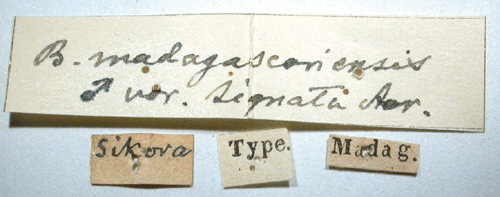 B. madagascariensis
♂ var. signata
Sikora
Type.
Madag.